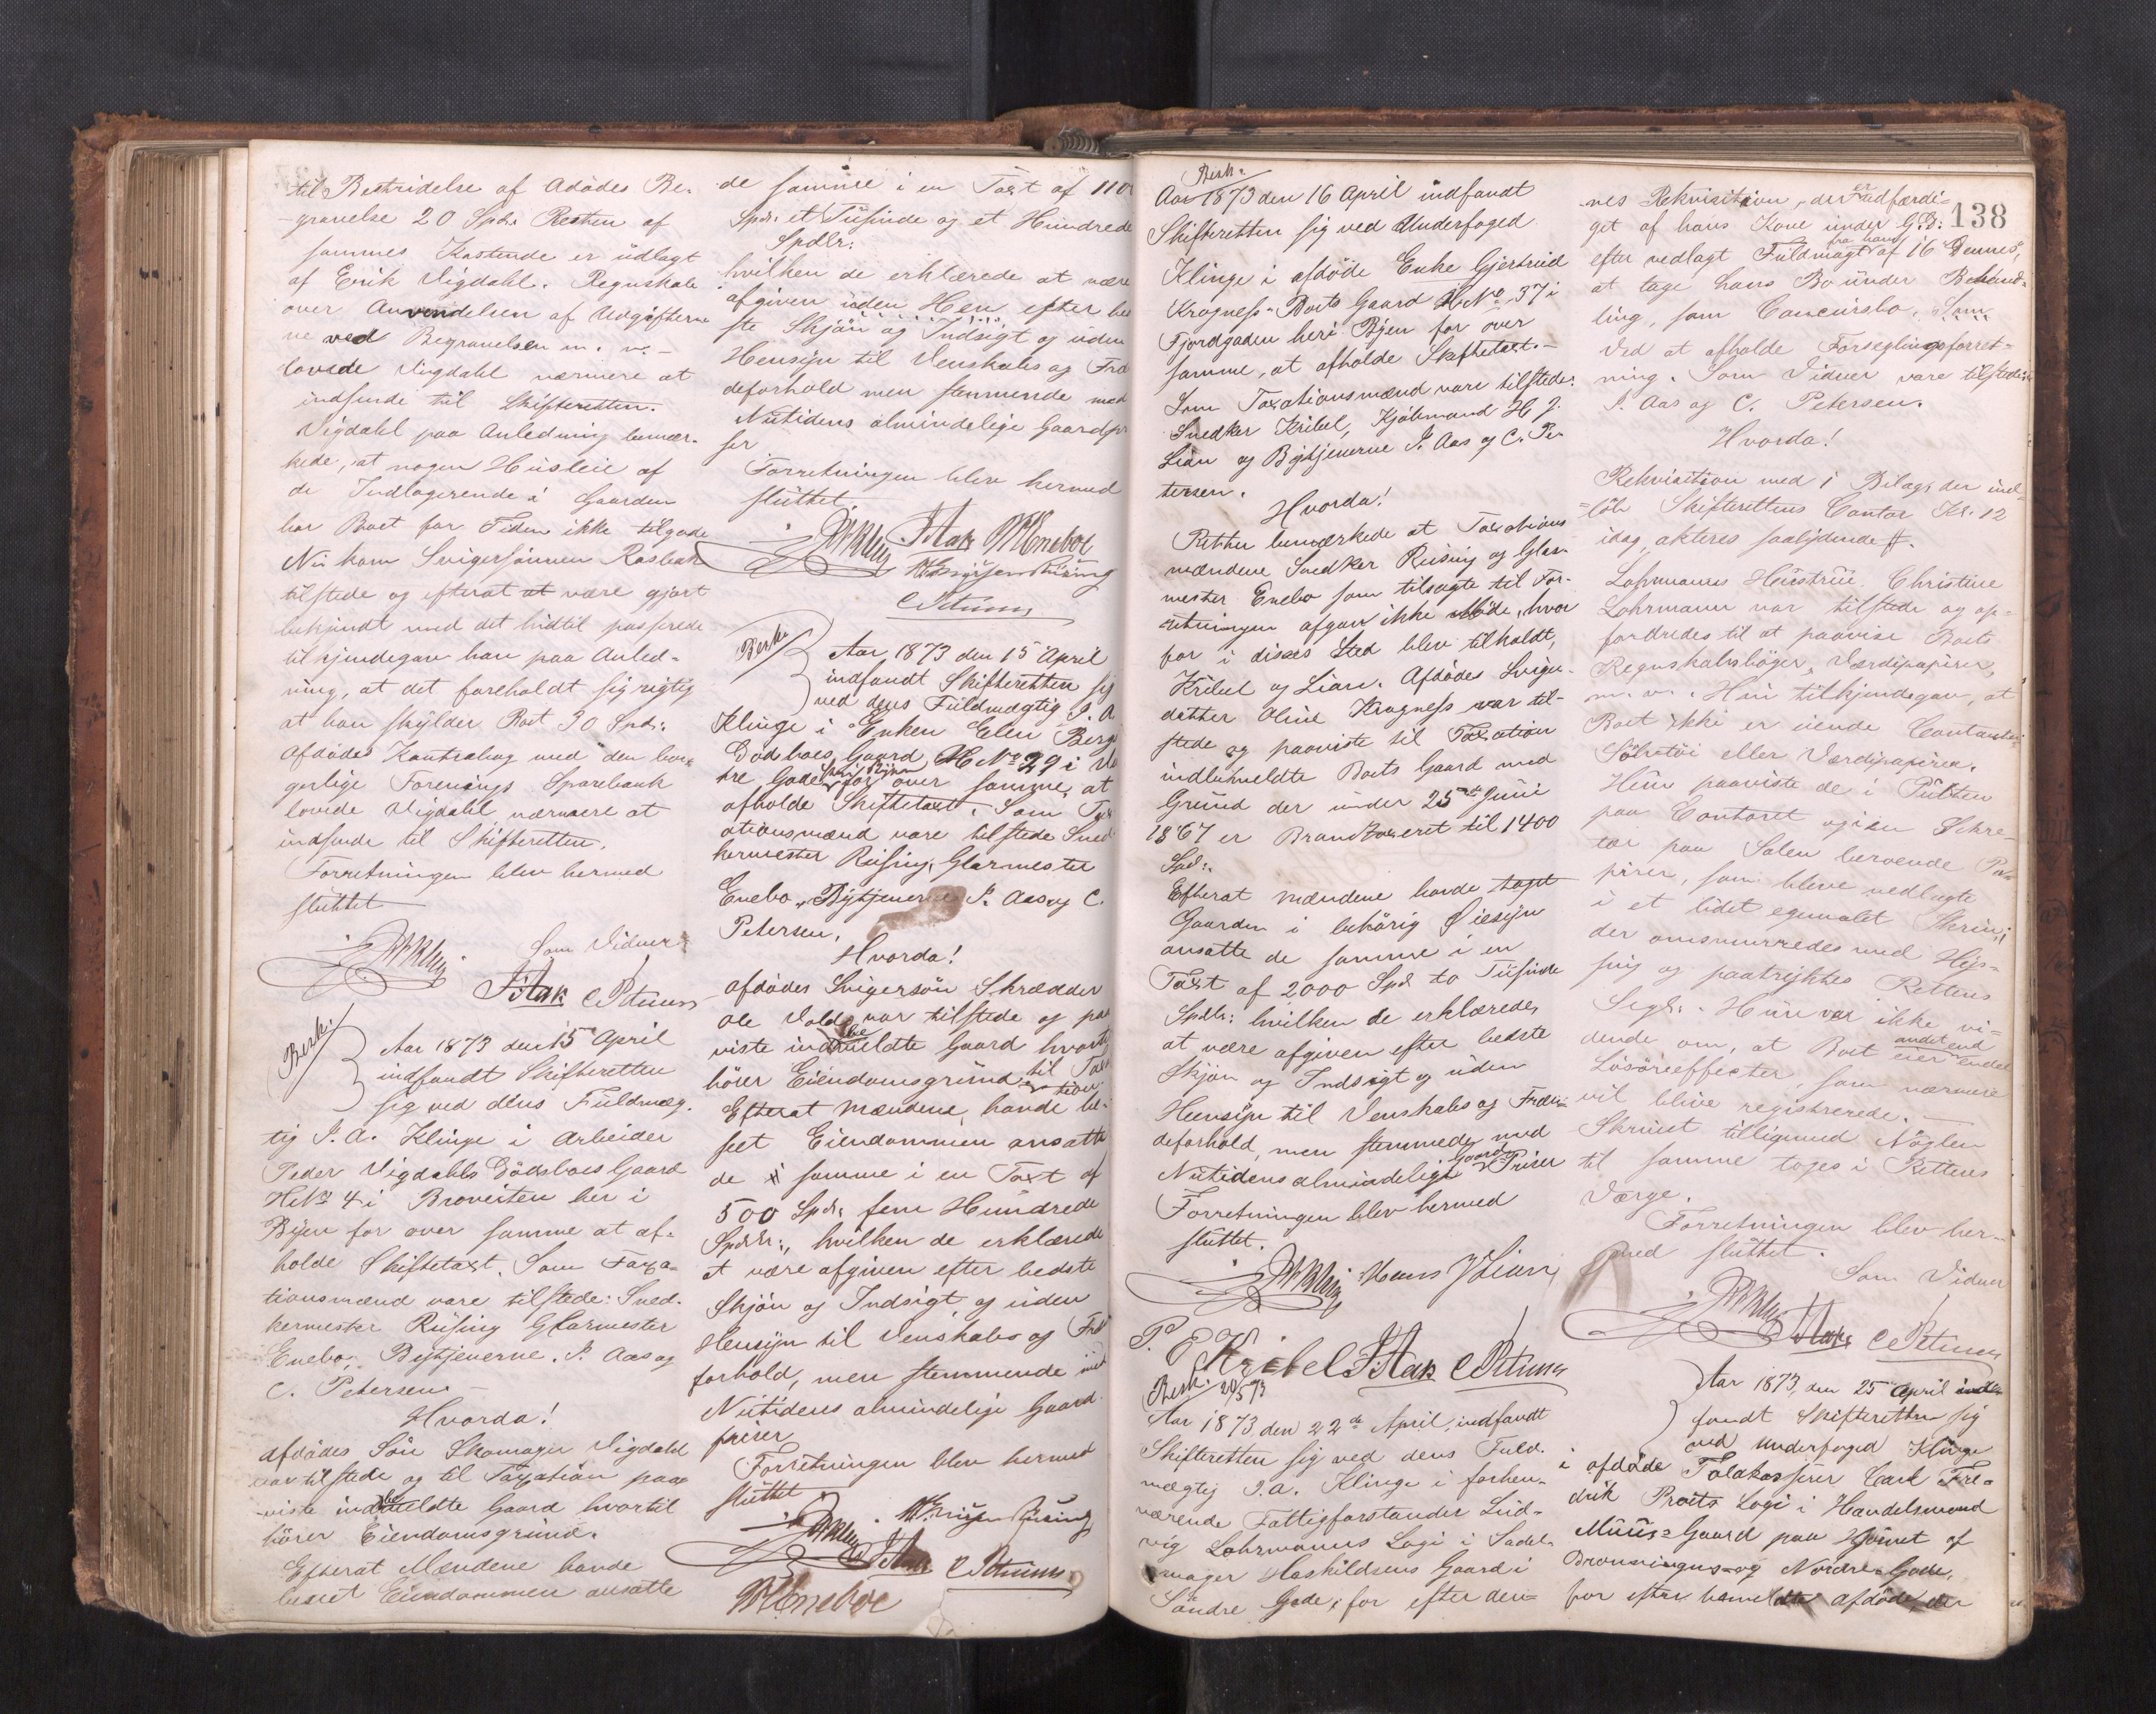 til Bestridelse af Afdödes Be-
gravelse 20 Spd. Resten af
sammes Kostende er udlagt
af Erik Vigdahl. Regnskab
over Anvendelsen af Udgifter-
ne ved Begravelsen m. v.
lovede Vigdahl nærmere at
indsende til Skifteretten.
Vigdahl paa Anledning bemær-
kede, at nogen Husleie af
de Indlogerende i Gaarden
har Boet for Tiden ikke tilgode
Nu kom Svigersönnen Rosbach
tilstede og efterat at være gjort
bekjendt med det hidtil passerede
tilkjendegav han paa Anled-
ning, at det foreholdt sig rigtig
at han skylder Boet 30 Spd.
Afdödes Kontrabog med den bor-
gerlige Forenings Sparebank
lovede Vigdahl nærmere at
indsende til Skifteretten.
Forretningen blev hermed
sluttet
Som Vidner:
P. Aas C Petersen
Besk.
Aar 1873 den 15 April
indfandt Skifteretten
sig ved dens Fuldmæg-
tig P. A. Klinge i Arbeider
Peder Vigdahls Dödsboes Gaard
H No 4 i Broveiten her i
Byen for over samme at af-
holde Skiftetaxt. Som Taxa-
tionsmænd vare tilstede: Sned-
kermester Rüsing Glarmester
Enebo, Bytjenerne P. Aas og
C. Petersen
Hvorda!
Afdödes Sön Skomager Vigdahl
var tilstede og til Taxation paa-
viste indbemeldte Gaard hvortil
hörer Eiendomsgrund.
Efterat Mændene havde
beseet Eiendommen ansatte
de samme i en Taxt af 1100
Spd. et Tusinde og et Hundrede
Spdlr.
hvilken de erklærede at være
afgiven uden Hen efter bed-
ste Skjön og Indsigt og uden
Hensyn til Venskabs og Fræn
deforhold men stemmende med
Nutidens almindelige Gaardpri
ser
Forretningen blev hermed
sluttet.
P. Aas Eneboe
Rüsing
C Petersen
Besk.
Aar 1873 den 15 April
indfandt Skifteretten sig
ved dens Fuldmægtig P. A
Klinge i Enken Elen Bergs
Dödsboes Gaard H No 29 i
tre Gade her i Byen for over samme, at
afholde Skiftetaxt. Som Tax
ationsmænd vare tilstede Sned
kermester Rüsing, Glarmester
Enebo, Bytjenerne P. Aas og C.
Petersen,
Hvorda!
Afdödes Svigersön Skrædder
Ole Vold var tilstede og paa
viste indbemeldte Gaard hvortil
hörer Eiendomsgrund til Taxa
tion.
Efterat Mændene havde be-
seet Eiendommen ansatte
de samme i en Taxt af
500 Spd. fem Hundrede
Spdlr., hvilken de erklærede
at være afgiven efter bedste
Skjön og Indsigt og uden
Hensyn til Venskabs og
forhold, men stemmende med
Nutidens almindelige Gaard
priser
Forretningen blev hermed
sluttet
Rüsing
P. Aas C Petersen
Eneboe
Besk.
Aar 1873 den 16 April indfandt
Skifteretten sig ved Underfoged
Klinge i afdöde Enke Gjertrud
Kragness's Boets Gaard H No 37 i
Fjordgaden heri Byen for over
samme, at afholde Skiftetaxt.
Som Taxationsmænd vare tilstede:
Snedker Kribel, Kjöbmand H J.
Lian og Bytjenerne P. Aas og C. Pe-
tersen.
Hvorda!
Retten bemærkede at Taxations
mændene Snedker Rüsing og Glar-
mester Enebo som tilsagte til For-
retningen afgav ikke Möde, hvor
for i disses Sted blev tilholdt,
Kribel og Lian. Afdödes Sviger-
datter Oline Kragness var til-
stede og paaviste til Taxation
indbemeldte Boets Gaard med
Grund der under 25de Juni
1867 er Brandtaxeret til 1400
Spd.
Efterat Mændene havde taget
Gaarden i behörig Öiesyn
ansatte de samme i en
Taxt af 2000 Spd. to Tusinde
Spdlr. hvilken de erklærede,
at være afgiven efter bedste
Skjön og Indsigt og uden
Hensyn til Venskabs og Fræn-
deforhold, men stemmede med
Nutidens almindelige Gaards Priser
Forretningen blev hermed
sluttet.
Hans J Lian
Kribel P. Aas C Petersen
Besk. 20/5 73
Aar 1873 den 22de April, indfandt
Skifteretten sig ved dens Fuld-
mægtig P. A. Klinge i forhen-
værende Fattigforstander Lud-
vig Lohrmanns Logi i Sadel-
mager Haskildsens Gaard i
Söndre Gade, for efter den-
138
nes Rekvisition, der er udfærdi-
get af hans Kone under G. D.
efter vedlagt Fuldmagt fra ham af 16 Dennes,
at tage hans Bo under Behand-
ling, som Concursbo, Som
ved at afholde Forseglingsforret-
ning. Som Vidner vare tilstede
P. Aas og C. Petersen.
Hvorda!
Rekvisition med 1 Bilag, der ind-
löb Skifterettens Contor Kl. 12
idag, akteres saalydende #.
Lohrmanns Hustrue Christine
Lohrmann var tilstede og op-
fordredes til at paavise Boets
Regnskabsböger, Værdipapirer,
m. v. Hun tilkjendegav, at
Boet ikke er eiende Contanter
Sölvtöi eller Værdipapirer.
Hun paaviste de i Pulten
paa Contoret og i en Sekre-
tær paa Salen beroende Pa-
pirer, som bleve nedlagte
i et lidet egemalet Skrin,
der omsnurredes med Hys-
sing og paatrykkes Rettens
Segl. Hun var ikke vi-
dende om, at Boet eier andet end endel
Lösöreeffecter, som nærmere
vil blive registrerede.
Skrinet tilligemed Nöglen
til samme toges i Rettens
Værge.
Forretningen blev her-
med sluttet.
Som Vidner
P. Aas C Petersen
Aar 1873, den 25 April ind-
fandt Skifteretten sig
ved Underfoged Klinge
i afdöde Toldkasserer Carl Fre-
drik Proits Logi i Handelsmand
Müüs's Gaard paa Hjörnet af
Dronningens- og Nordre-Gade,
for efter bemeldte Afdöde, der